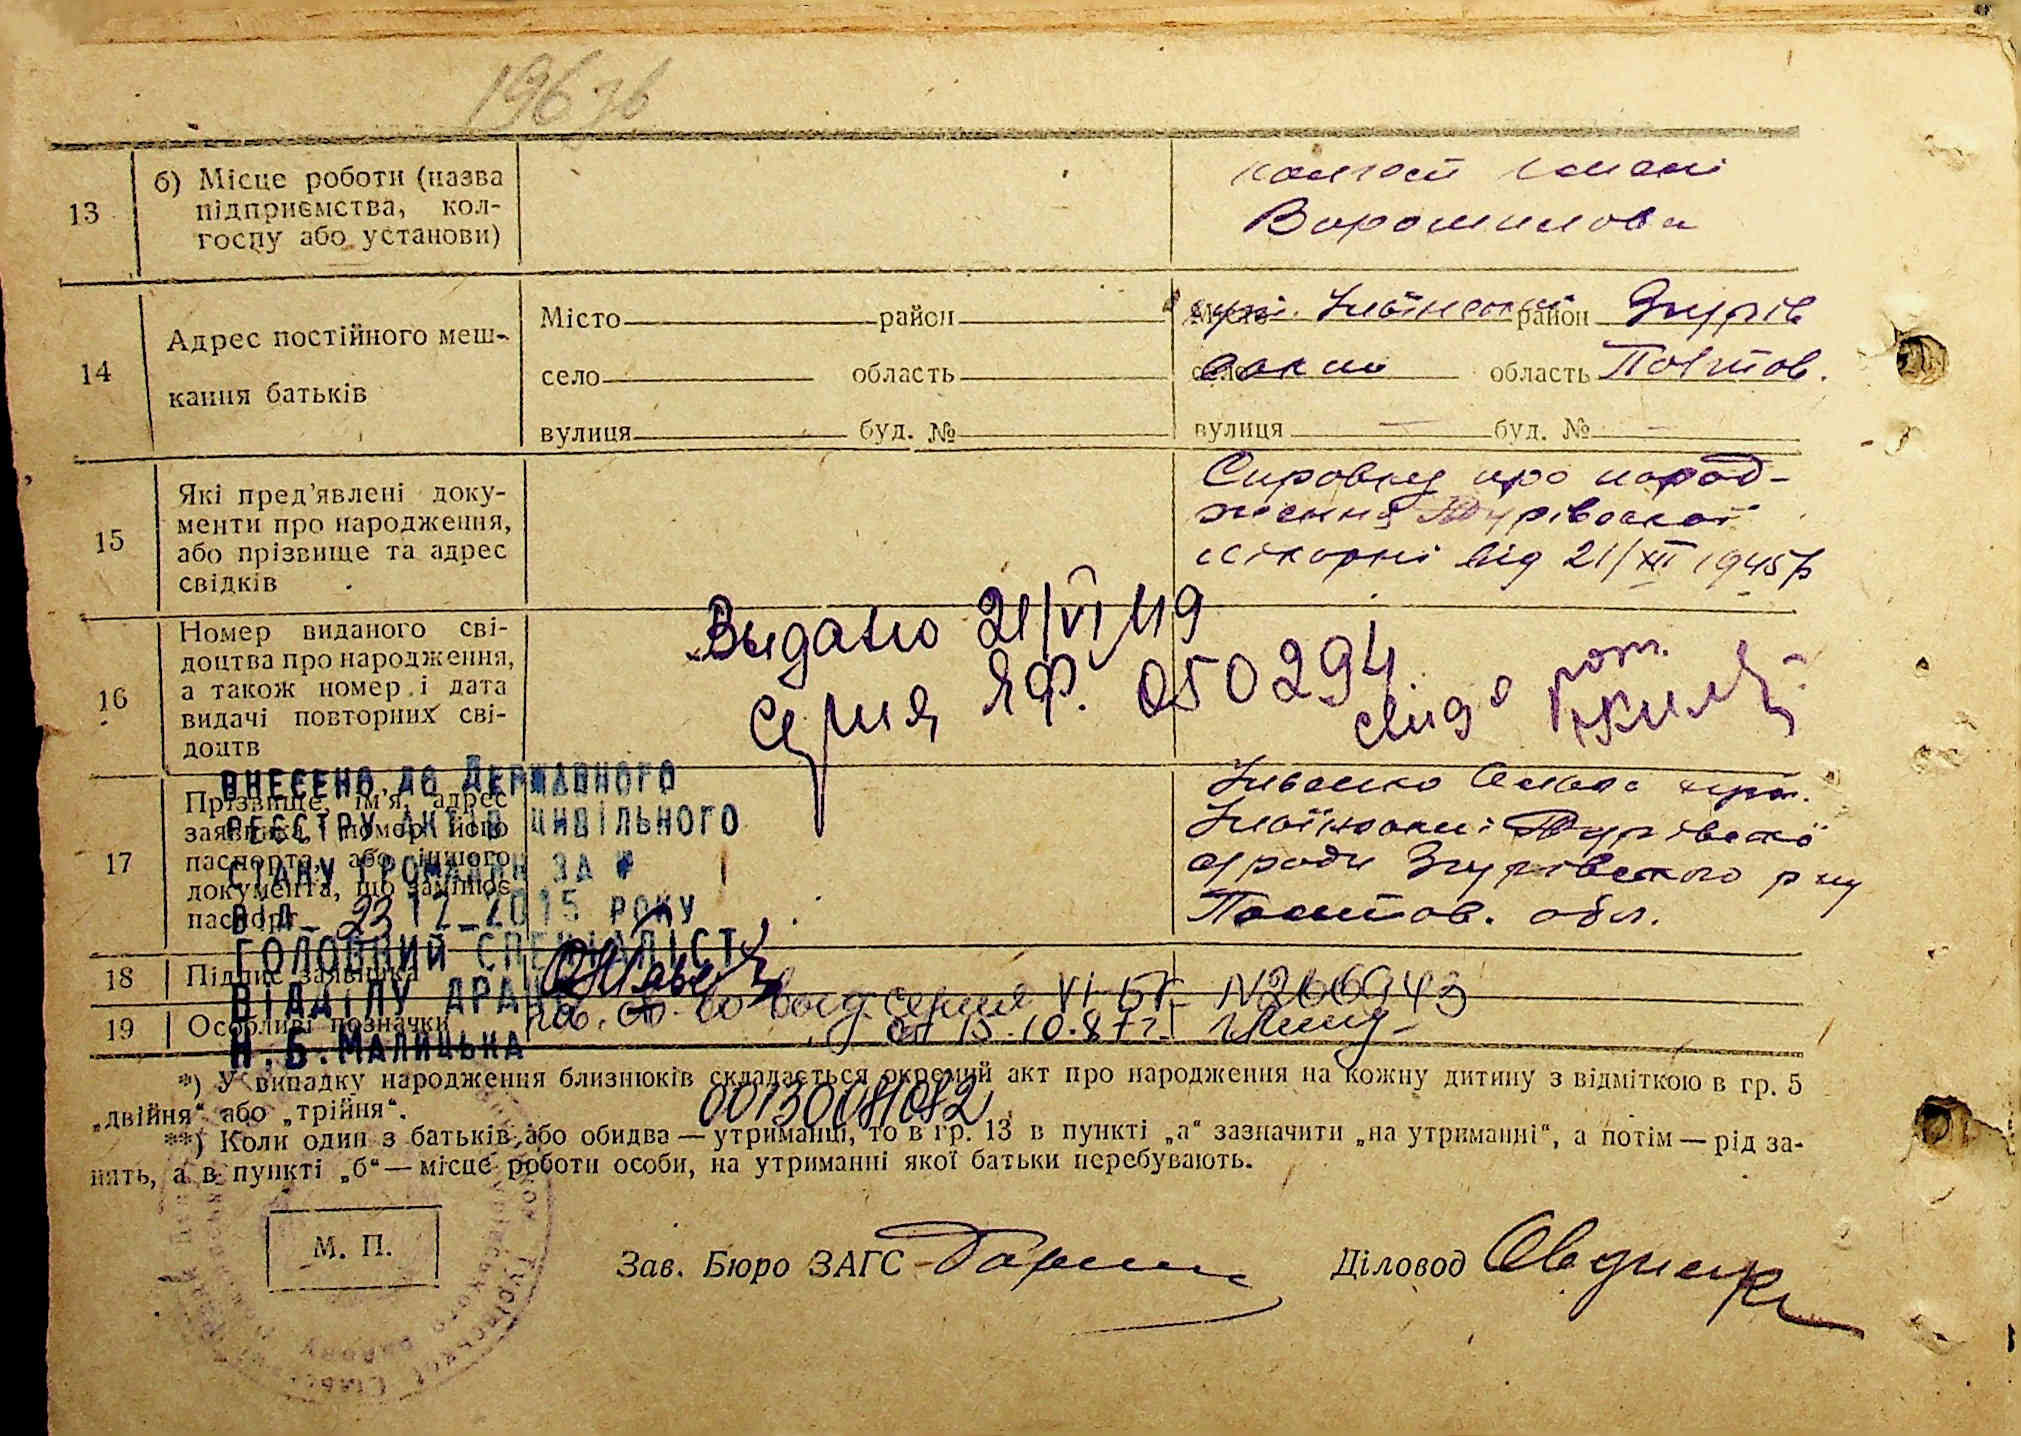 13
б) Місце роботи (назва
підприємства, кол-
госпу або установи)
колгосп імені
Ворошилова
14
Адрес постійного меш-
кання батьків
Місто район
село область
вулиця буд. №
Місто район Згурів
село ський область Полтов.
вулиця буд. №
15
Які пред'явлені доку-
менти про народження,
або прізвище та адрес
свідків
Справку про народ-
ження Турівської
лікарні від 21/XII 1945 р
16
Номер виданого сві-
доцтва про народження,
а також номер і дата
видачі повторних сві-
доцтв
Выдано 21/VI 49
Серия ЯФ. 050294
17
Прізвище, ім'я, адрес
заявника і номер його
паспорта, або іншого
документа, що замінює
паспорт
хут.
Турівської
сради Згурівського р ну
Полтов. обл.
ВНЕСЕНО ДО ДЕРЖАВНОГО
РЕЄСТРУ АКТІВ ЦИВІЛЬНОГО
СТАНУ ГРОМАДЯН ЗА #
ВІД 23 12 2015 РОКУ
ГОЛОВНИЙ СПЕЦІАЛІСТ
ВІДДІЛУ ДРАЦС
Н.Б.МАЛИЦЬКА
18
Підпис заявника
19
Особливі позначки
пов. св-во выд. серия VI-БГ N266943
от 15.10.87 г.
*) У випадку народження близнюків складається окремий акт про народження на кожну дитину з відміткою в гр. 5
„двійня“ або „трійня“.
00130081082
**) Коли один з батьків або обидва — утриманці, то в гр. 13 в пункті „а“ зазначити „на утриманні“, а потім — рід за-
нять, а в пункті „б“ — місце роботи особи, на утриманні якої батьки перебувають.
М. П.
Зав. Бюро ЗАГС
Діловод